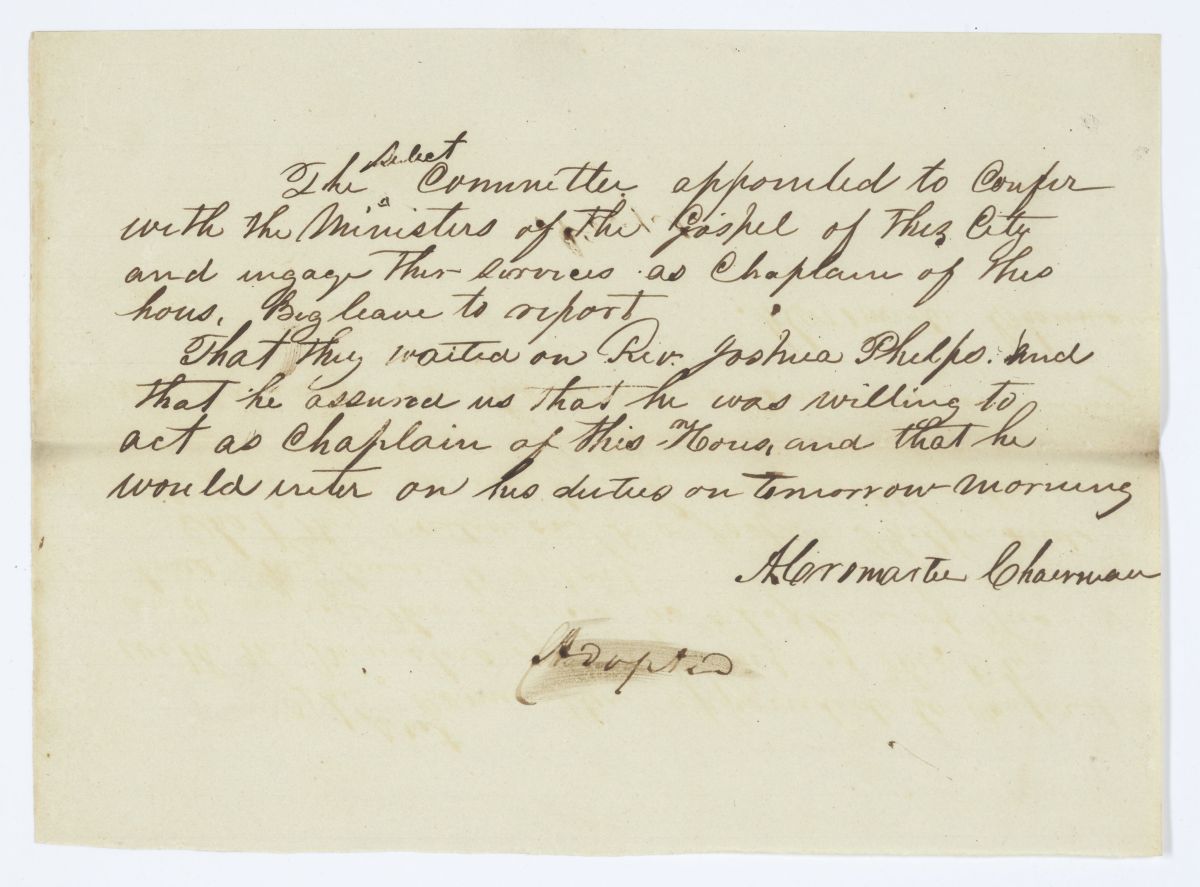 The select Committee appointed to Confer
with the Ministers of the Gospel of this City
and ingage ther services as Chaplain of this
hous, Beg leave to report
That they waited on Rev. Joshua Phelps. And
that he assured us that he was willing to
act as Chaplain of this Hous, and that he
would enter on his duties on tomorrow morning
Chairman
Adopted